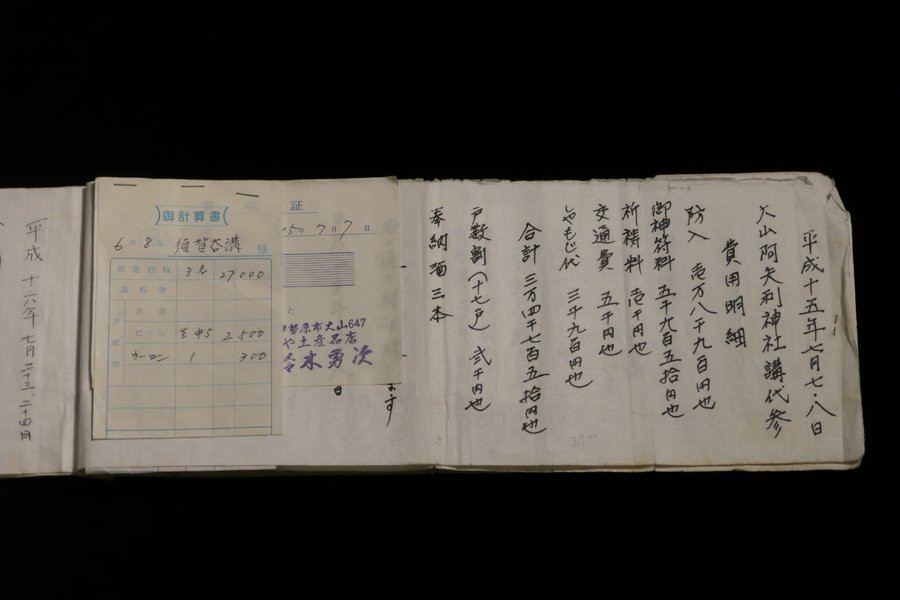 平成十五年七月七・八日
大山阿夫利神社講代参
費用明細
防入 壱万八千九百円也
御神符料 五千九百五拾円也
祈祷料 壱千円也
交通費 五千円也
しゃもじ代 三千九百円也
合計 三万四千七百五拾円也
戸数割(十七戸) 弐千円也
奉納酒三本
ます
日
証
5年7月7日
勢原市大山647
や土産品店
木勇次
御計算書
6月8日 須賀谷講 様
御宿泊料 3名 27,000
御料理
ビール 生中5 2500
ウーロン 1 300
平成十六年七月二十三、二十四日